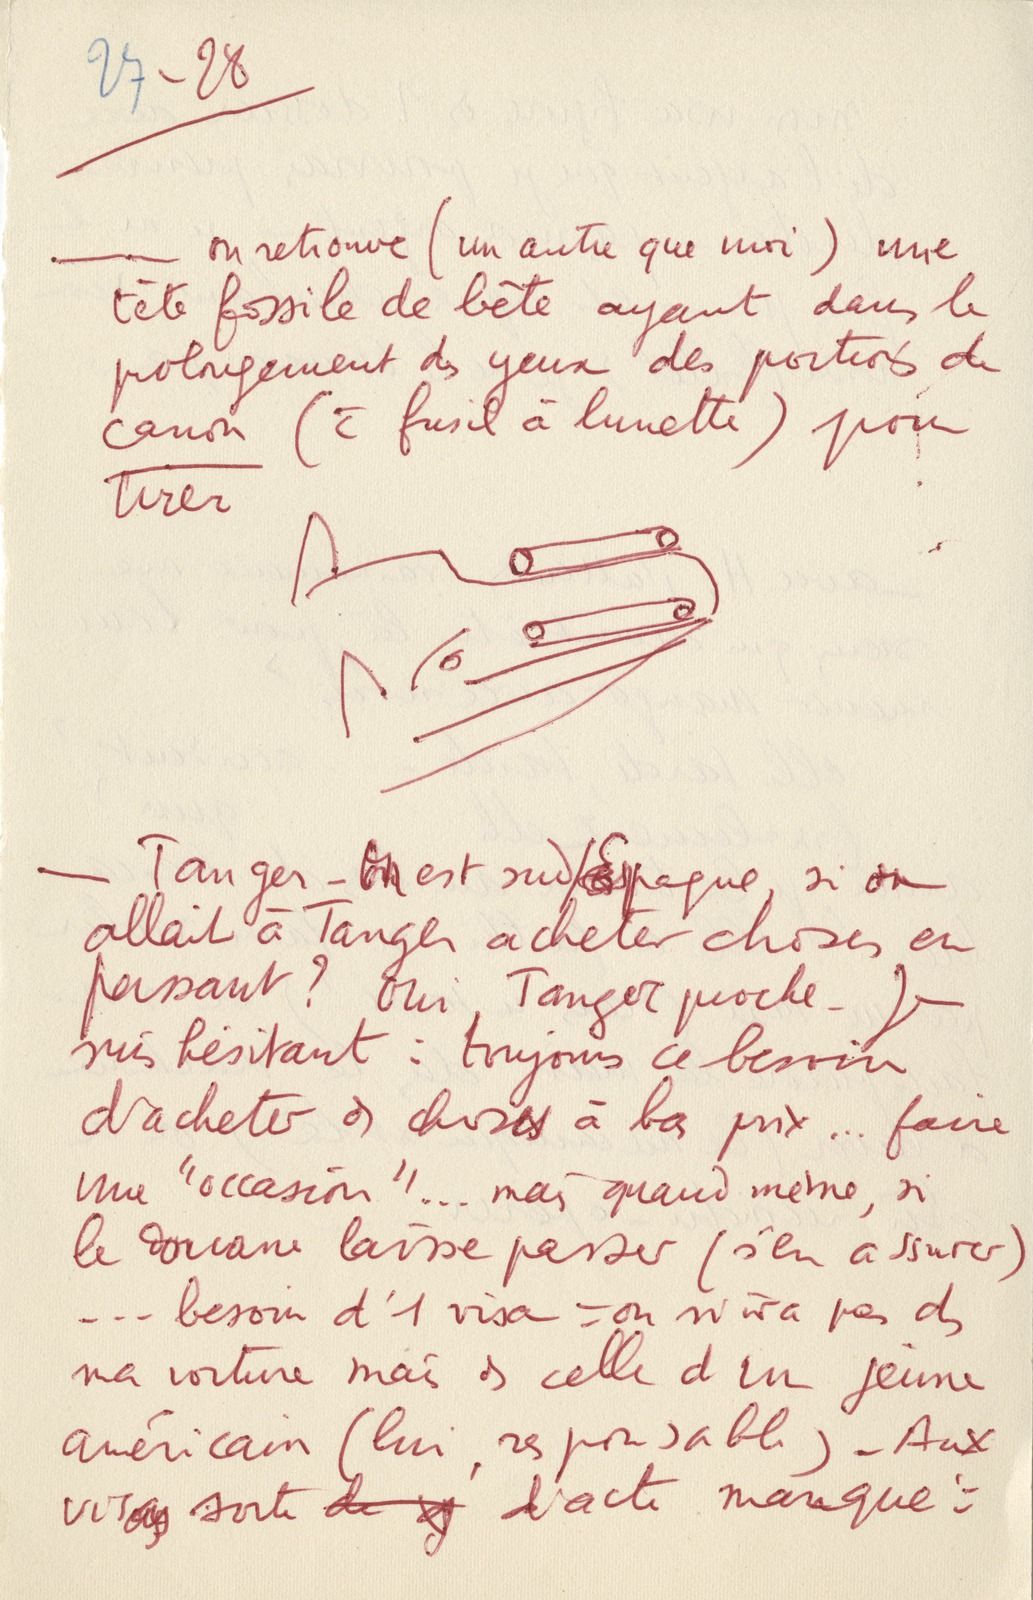 27-28
— on retrouve (un autre que moi) une
tête fossile de bête ayant dans le
prolongement des yeux des portions de
canon (c fusil à lunette) pour
tirer
— Tanger - On est sud/Espagne, si on
allait à Tanger acheter choses en
passant? Oui, Tanger proche - Je
suis hésitant : toujours ce besoin
d'acheter ds choses à bas prix... faire
une "occasion"... mais quand même, si
le douane laisse passer (s'en assurer)
--- besoin d'1 visa = on n'ira pas ds
ma voiture mais ds celle d'un jeune
américain (lui, responsable) - Aux
visas sorte d'acte manqué =